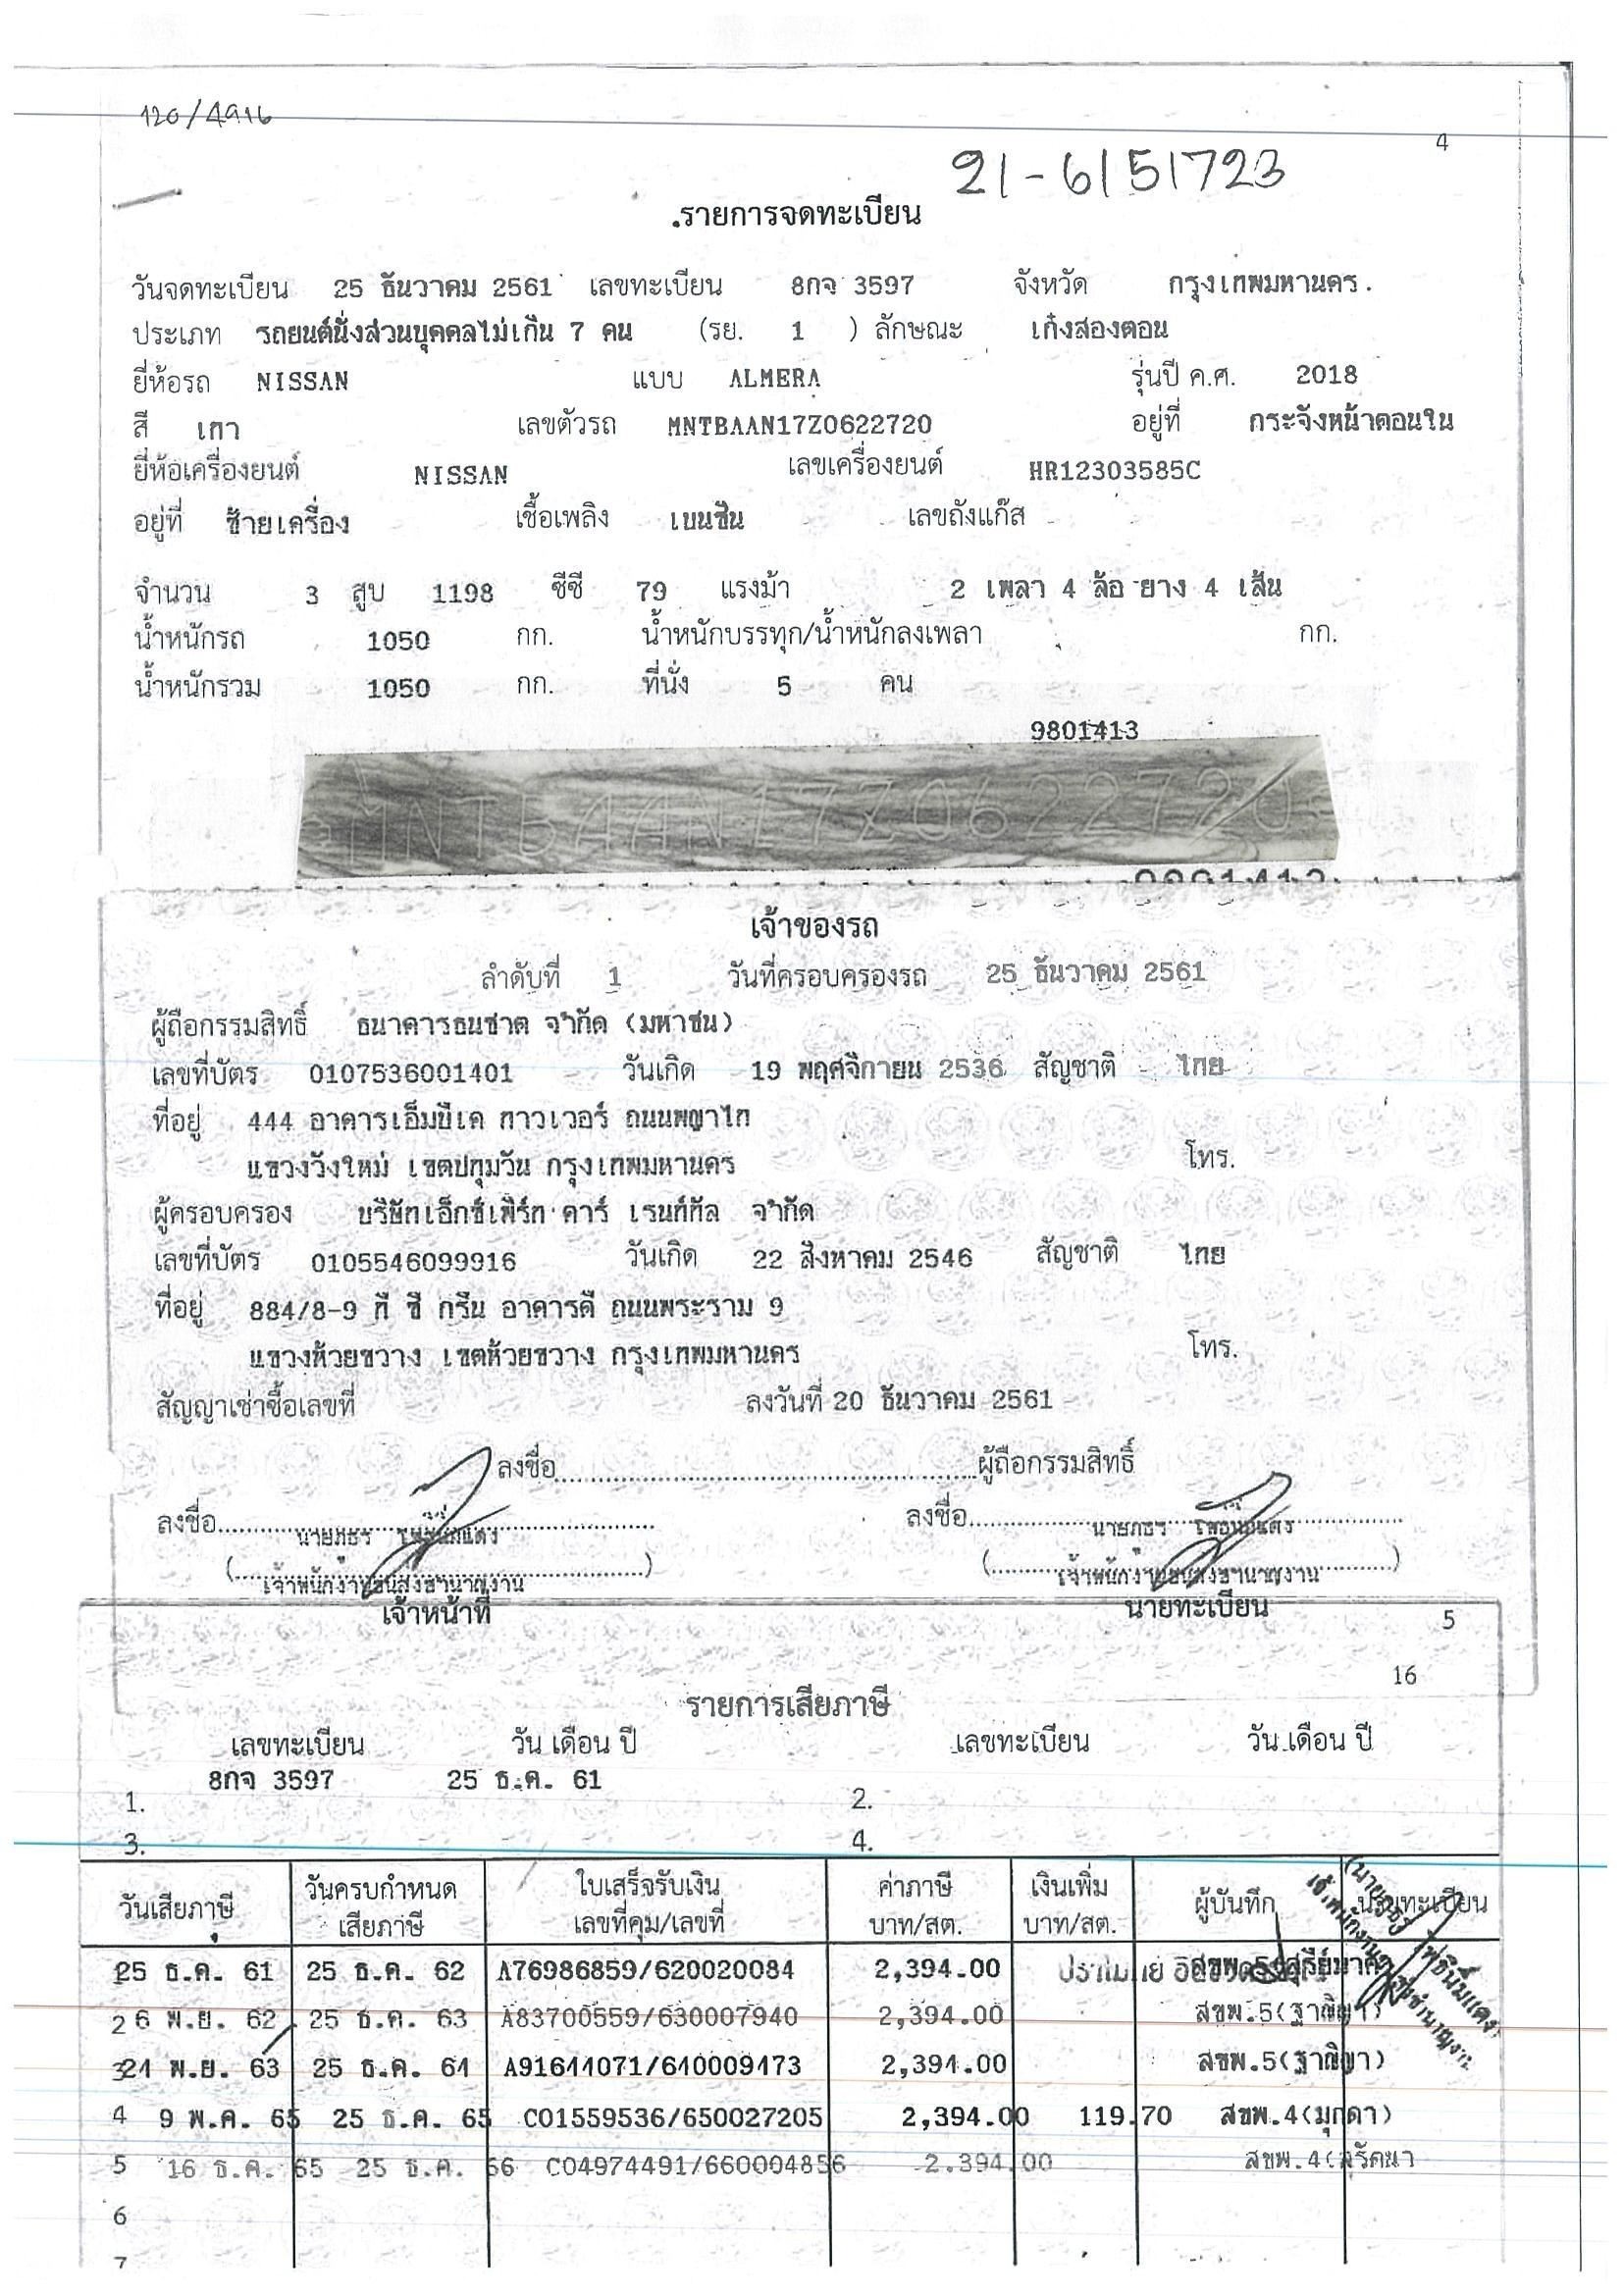 120/4916
4
21-6151723
รายการจดทะเบียน
วันจดทะเบียน 25 ธันวาคม 2561 เลขทะเบียน 8กจ 3597 จังหวัด กรุงเทพมหานคร.
ประเภท รถยนต์นั่งส่วนบุคคลไม่เกิน 7 คน (รย. 1 ) ลักษณะ เก๋งสองตอน
ยี่ห้อรถ NISSAN แบบ ALMERA รุ่นปี ค.ศ. 2018
สี เทา เลขตัวรถ MNTBAAN17Z0622720 อยู่ที่ กระจังหน้าตอนใน
ยี่ห้อเครื่องยนต์ NISSAN เลขเครื่องยนต์ HR12303585C
อยู่ที่ ซ้ายเครื่อง เชื้อเพลิง เบนซิน เลขถังแก๊ส
จำนวน 3 สูบ 1198 ซีซี 79 แรงม้า 2 เพลา 4 ล้อ ยาง 4 เส้น
น้ำหนักรถ 1050 กก. น้ำหนักบรรทุก/น้ำหนักลงเพลา กก.
น้ำหนักรวม 1050 กก. ที่นั่ง 5 คน
9801413
MNTBAAN17Z0622720
เจ้าของรถ
ลำดับที่ 1 วันที่ครอบครองรถ 25 ธันวาคม 2561
ผู้ถือกรรมสิทธิ์ ธนาคารธนชาต จำกัด (มหาชน)
เลขที่บัตร 0107536001401 วันเกิด 19 พฤศจิกายน 2536 สัญชาติ ไทย
ที่อยู่ 444 อาคารเอ็มบีเค ทาวเวอร์ ถนนพญาไท
แขวงวังใหม่ เขตปทุมวัน กรุงเทพมหานคร โทร.
ผู้ครอบครอง บริษัทเอ็กซ์เพิร์ท คาร์ เรนท์ทัล จำกัด
เลขที่บัตร 0105546099916 วันเกิด 22 สิงหาคม 2546 สัญชาติ ไทย
ที่อยู่ 884/8-9 ที ซี กรีน อาคารดี ถนนพระราม 9
แขวงห้วยขวาง เขตห้วยขวาง กรุงเทพมหานคร โทร.
สัญญาเช่าซื้อเลขที่ ลงวันที่ 20 ธันวาคม 2561
ลงชื่อ ผู้ถือกรรมสิทธิ์
ลงชื่อ นายภูธร ลงชื่อ นายภูธร
(เจ้าพนักงานขนส่งชำนาญงาน) (เจ้าพนักงานขนส่งชำนาญงาน)
เจ้าหน้าที่ นายทะเบียน
5
16
รายการเสียภาษี
เลขทะเบียน วัน เดือน ปี เลขทะเบียน วัน เดือน ปี
1. 8กจ 3597 25 ธ.ค. 61 2.
3. 4.
วันเสียภาษี วันครบกำหนดเสียภาษี ใบเสร็จรับเงิน เลขที่คุม/เลขที่ ค่าภาษี บาท/สต. เงินเพิ่ม บาท/สต. ผู้บันทึก นายทะเบียน
1 25 ธ.ค. 61 25 ธ.ค. 62 A76986859/620020084 2,394.00 สขพ.5
2 6 พ.ย. 62 25 ธ.ค. 63 A83700559/630007940 2,394.00 สขพ.5(ฐาณิญา)
3 24 พ.ย. 63 25 ธ.ค. 64 A91644071/640009473 2,394.00 สขพ.5(ฐาณิญา)
4 9 พ.ค. 65 25 ธ.ค. 65 C01559536/650027205 2,394.00 119.70 สขพ.4(มุกดา)
5 16 ธ.ค. 65 25 ธ.ค. 66 C04974491/660004856 2,394.00 สขพ.4(สุรัตนา
6
7